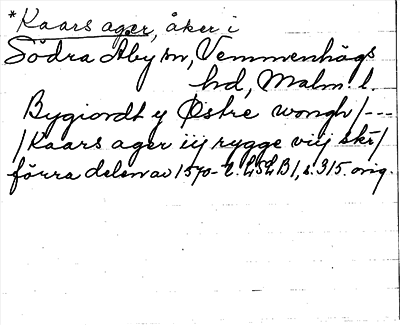 *Kaars ager, åker i
Södra Åby sn, Vemmenhögs
hd, Malm. l.
Bygiordt y Østre wongh/---
/Kaars ager iij rygge viij skr/
förra delen av 1570-t. LSLB1, s. 315. orig.